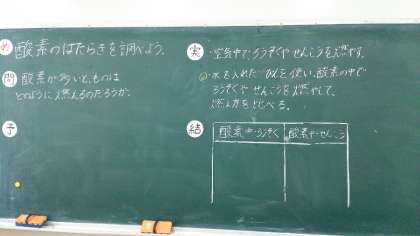 め 酸素のはたらきを調べよう。
問 酸素が多いと、ものは
どのように燃えるのだろうか。
予
実 ・空気中で、ろうそくやせんこうを燃やす。
・水を入れた を使い、酸素の中で
ろうそくやせんこうを燃やして、
燃え方をくらべる。
結
酸素中・ろうそく 酸素中・せんこう